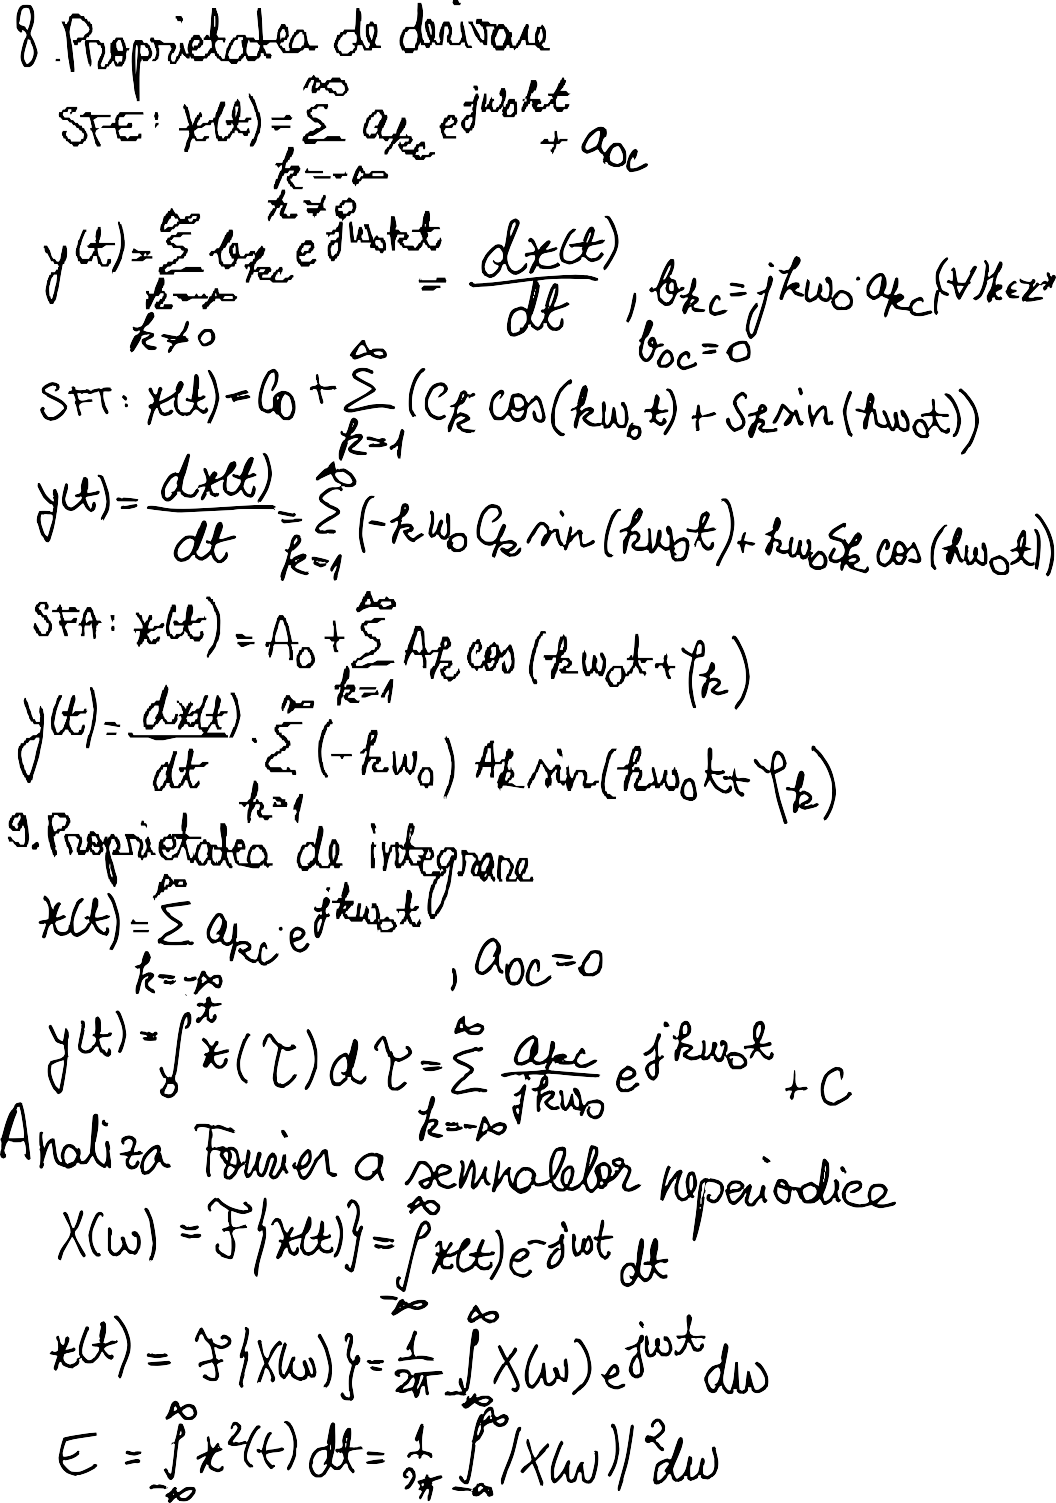 8. Proprietatea de derivare
SFE: x(t) = ∑_{k=-∞, k≠0}^{∞} a_{kc} e^{jω₀kt} + a_{0c}
y(t) = ∑_{k=-∞, k≠0}^{∞} b_{kc} e^{jω₀kt} = dx(t)/dt, b_{kc} = jkω₀·a_{kc}, (∀)k∈Z*
b_{0c} = 0
SFT: x(t) = C₀ + ∑_{k=1}^{∞} (C_k cos(kω₀t) + S_k sin(kω₀t))
y(t) = dx(t)/dt = ∑_{k=1}^{∞} (-kω₀ C_k sin(kω₀t) + kω₀S_k cos(kω₀t))
SFA: x(t) = A₀ + ∑_{k=1}^{∞} A_k cos(kω₀t + φ_k)
y(t) = dx(t)/dt · ∑_{k=1}^{∞} (-kω₀) A_k sin(kω₀t + φ_k)
9. Proprietatea de integrare
x(t) = ∑_{k=-∞}^{∞} a_{kc}·e^{jkω₀t}, a_{0c} = 0
y(t) = ∫_0^t x(τ) dτ = ∑_{k=-∞}^{∞} a_{kc}/(jkω₀) e^{jkω₀t} + C
Analiza Fourier a semnalelor neperiodice
X(ω) = ℱ{x(t)} = ∫_{-∞}^{∞} x(t) e^{-jωt} dt
x(t) = ℱ{X(ω)} = 1/2π ∫_{-∞}^{∞} X(ω) e^{jωt} dω
E = ∫_{-∞}^{∞} x²(t) dt = 1/2π ∫_{-∞}^{∞} |X(ω)|² dω